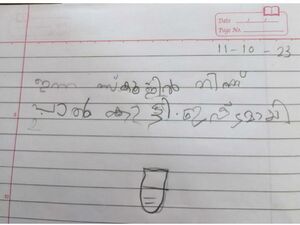 Date
Page No
11-10-23
ഇന്ന് സ്കൂളിൽ നിന്ന്
പാൽ കിട്ടി. ഇഷ്ടമായി